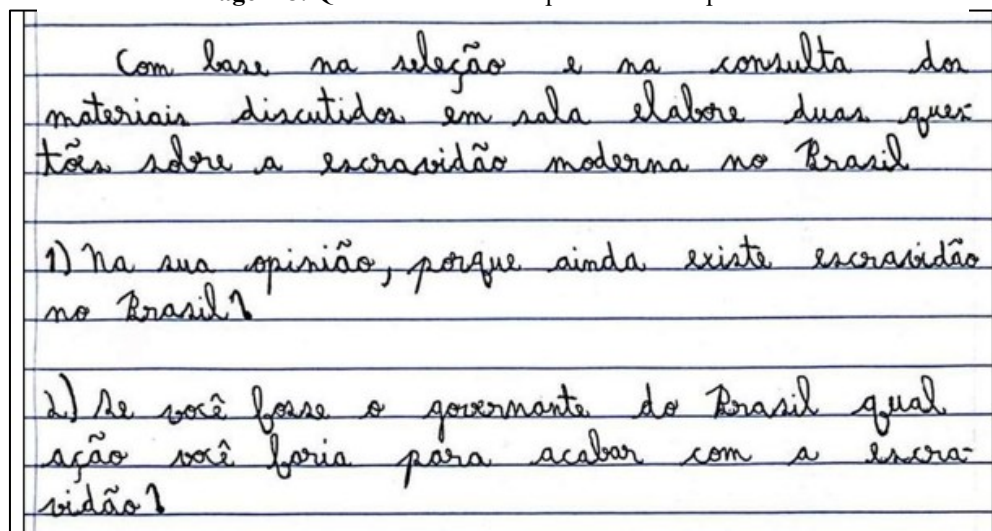 Com base na seleção e na consulta dos
materiais discutidos em sala elabore duas ques-
tões sobre a escravidão moderna no Brasil
1) Na sua opinião, porque ainda existe escravidão
no Brasil?
2) Se você fosse o governante do Brasil qual
ação você faria para acabar com a escra-
vidão?